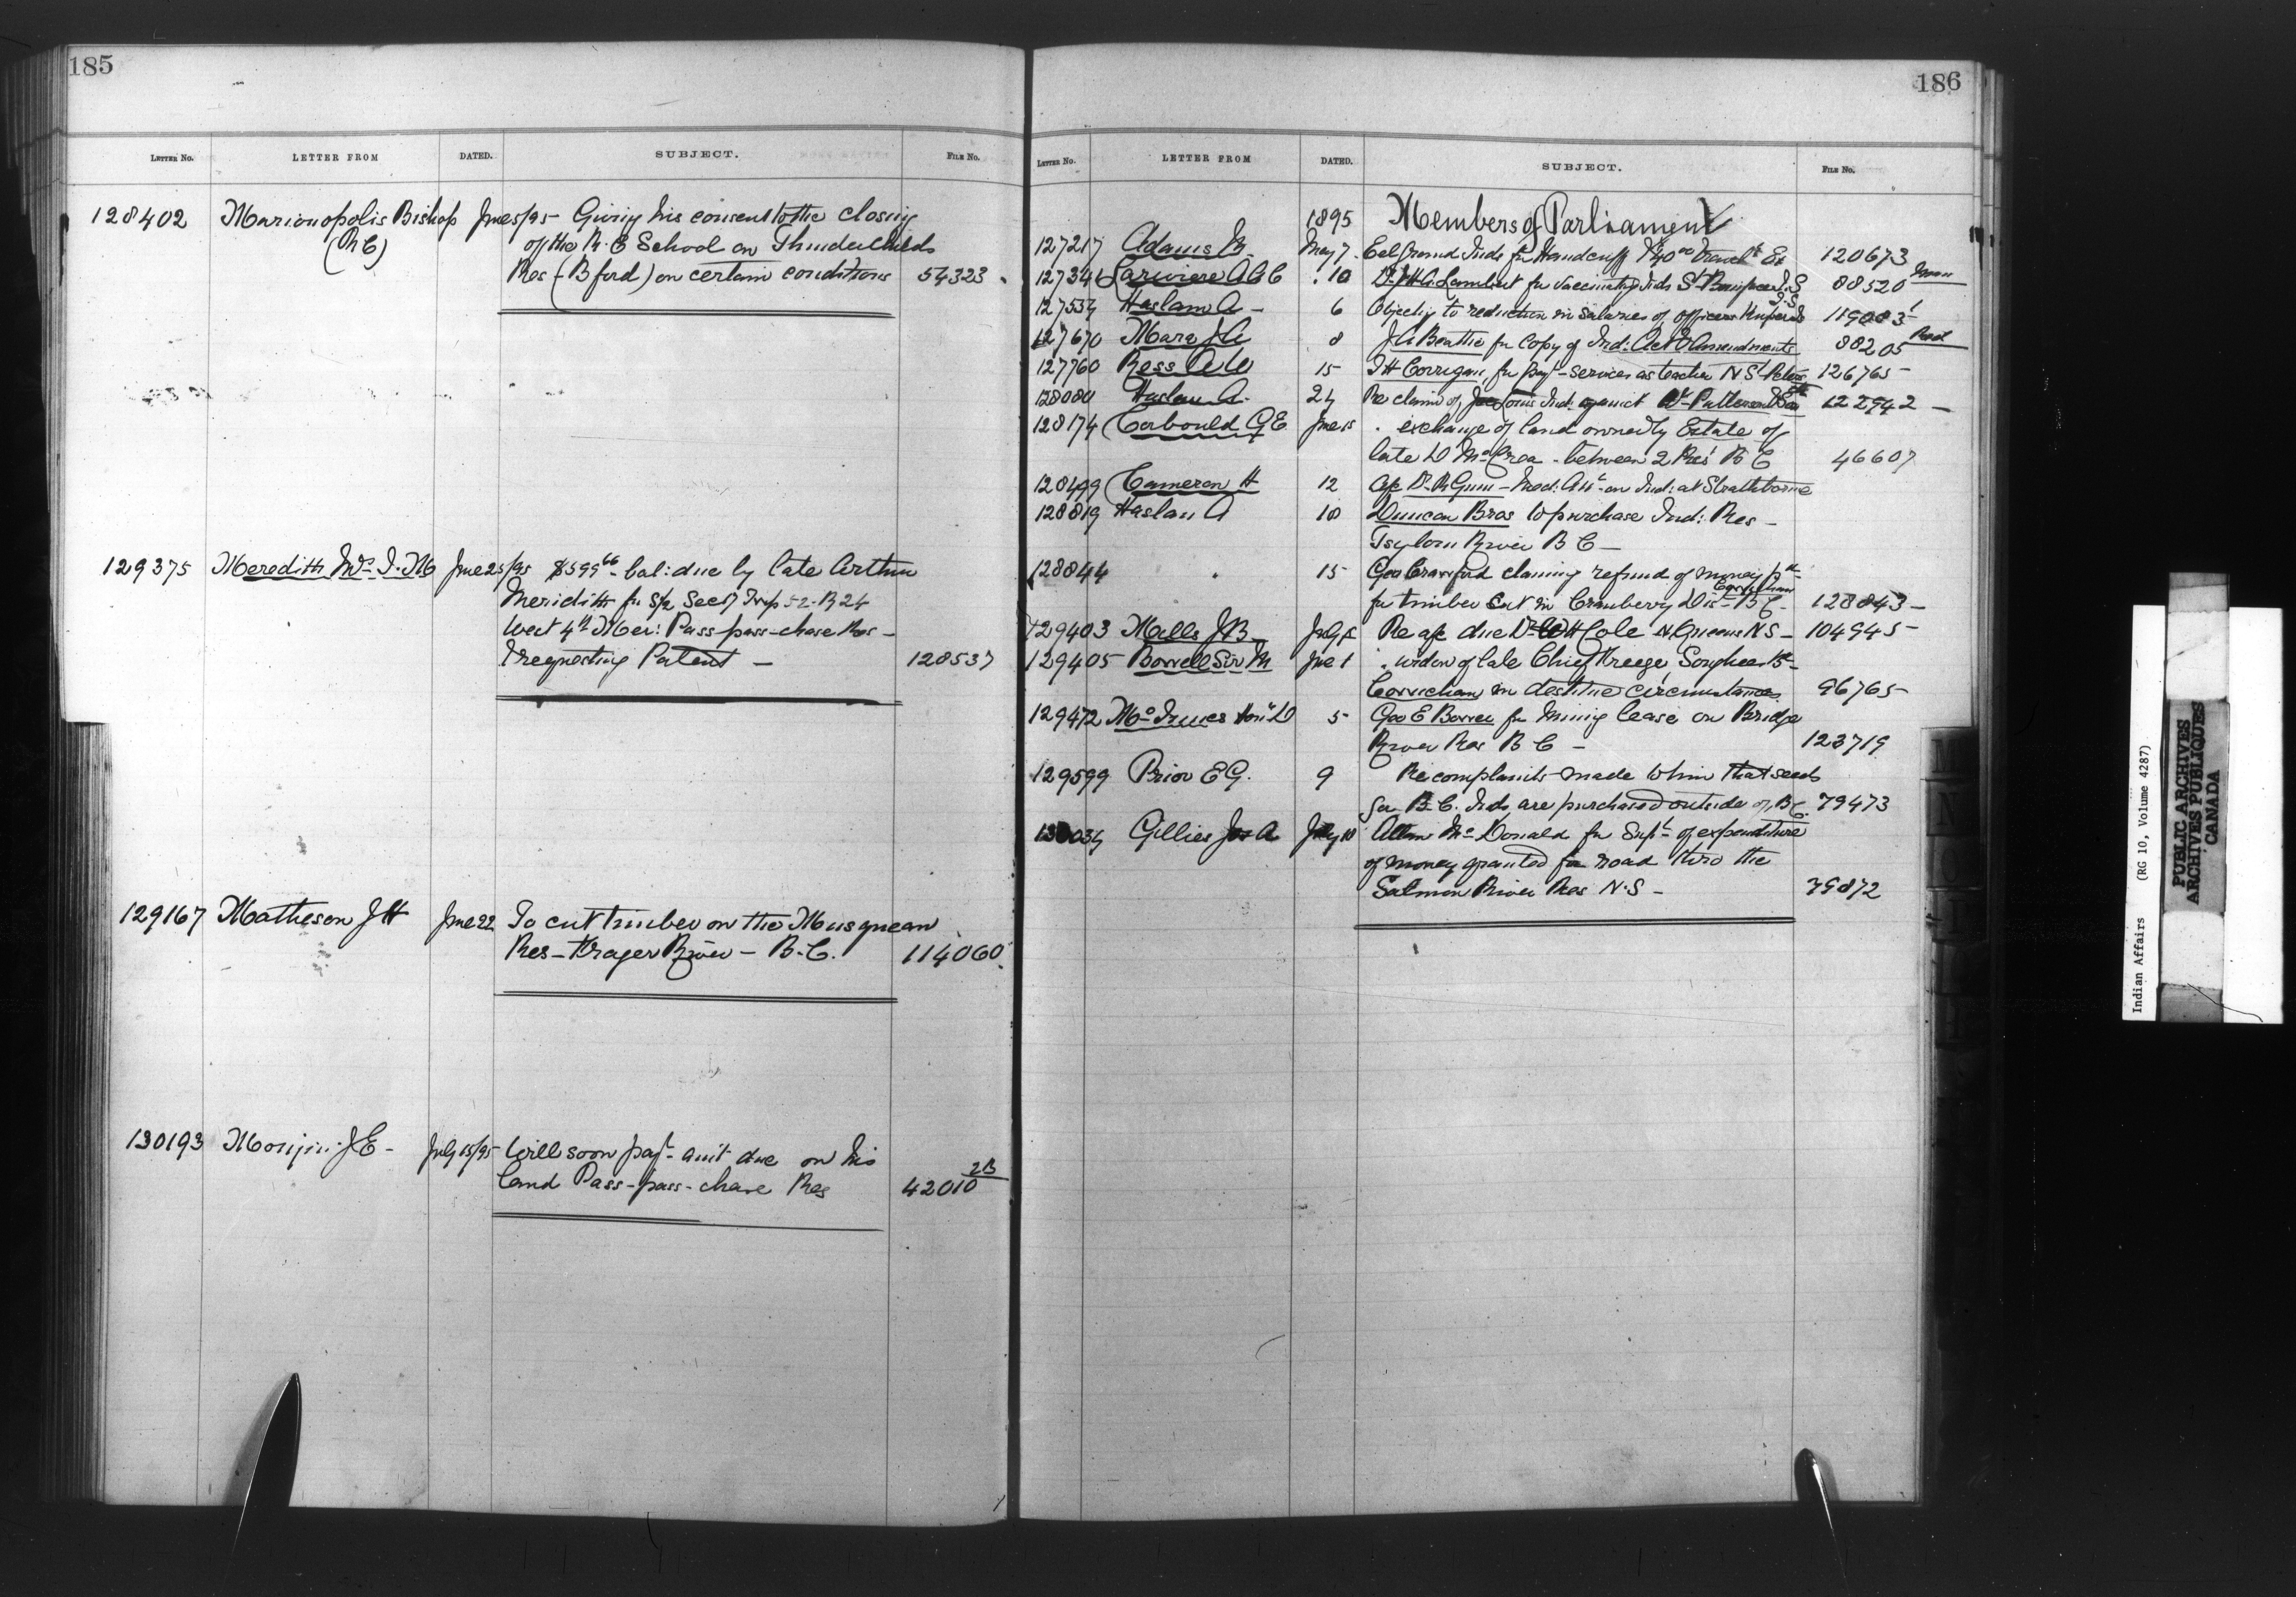 185
LETTER NO. LETTER FROM DATED. SUBJECT. FILE NO.
128402 Marionopolis Bishop June 5/95 Giving his consent to the closing
(R C) of the R. C School on Thunderchilds
Res (B ford) on certain conditions 54323
129375 Meredith Mrs I. M June 25/95 $599 66 bal: due by late Arthur
Meridith for S/2 Sec 7 Twp 52. R 24
West 4th Mer: Pass-pass-chase Res -
& requesting Patent - 128537
129167 Matheson J H June 22 To cut timber on the Musqueam
Res - Frazer River - B. C. 114060
130193 J E - July 15/95 Will soon pay amt due on his
land Pass-pass-chase Res 42010 2B
186
LETTER NO. LETTER FROM DATED. SUBJECT. FILE NO.
1895 Members of Parliament
127217 Adams M. May 7 Eel Ground Inds for Handcuff & 40 00 Travel Ex 120673
12734 Lariviere A A C . 10 Dr J H O Lambert for vaccinating Inds St Boniface 88520 Man
I.S
127554 Haslam A - 6 Objecting to reduction in salaries of officers Kuper Is 119083
127670 Mara J A 8 J A Beattie for copy of Ind: Act & Amendments 88205
127760 Ross A W 15 J H Corrigan for payt services as teacher N St Peters 126765
128080 Haslam A. 24 Re claim of Louis Ind: against Wm Patterson 122942 -
128174 Corbould G E June 15 . exchange of land owned by Estate of
late D McCrea - between 2 Res' B C 46607
128499 Cameron H 12 a/c Dr R Gunn - Med: Att on Ind: at Strathlorne
128819 Haslam A 10 Duncan Bros to purchase Ind: Res -
River B C -
128844 . 15 Geo Crawford claiming refund of money pd
Cowichan
for timber cut in Cranberry Dis - B C - 128843 -
129403 Mills J B July 5 Re a/c due Dr W H Cole N Queens N S - 104945
129405 Bowell Sir M June 1 . widow of late Chief Freezy, Songhees Bd
Cowichan in destitute circumstances 96765
129472 McInnes Hon D 5 Geo E for Mining lease on Bridge
River Res B C - 123719
129599 Prior E G. 9 Re complaints made to him that seeds
for B. C. Inds are purchased outside of B C. 79473
130034 Gillies Jos A July 18 Allan McDonald for Supt of expenditure
of money granted for road thro the
Salmon River Res N. S - 79872
Indian Affairs (RG 10, Volume 4287)
PUBLIC ARCHIVES
ARCHIVES PUBLIQUES
CANADA